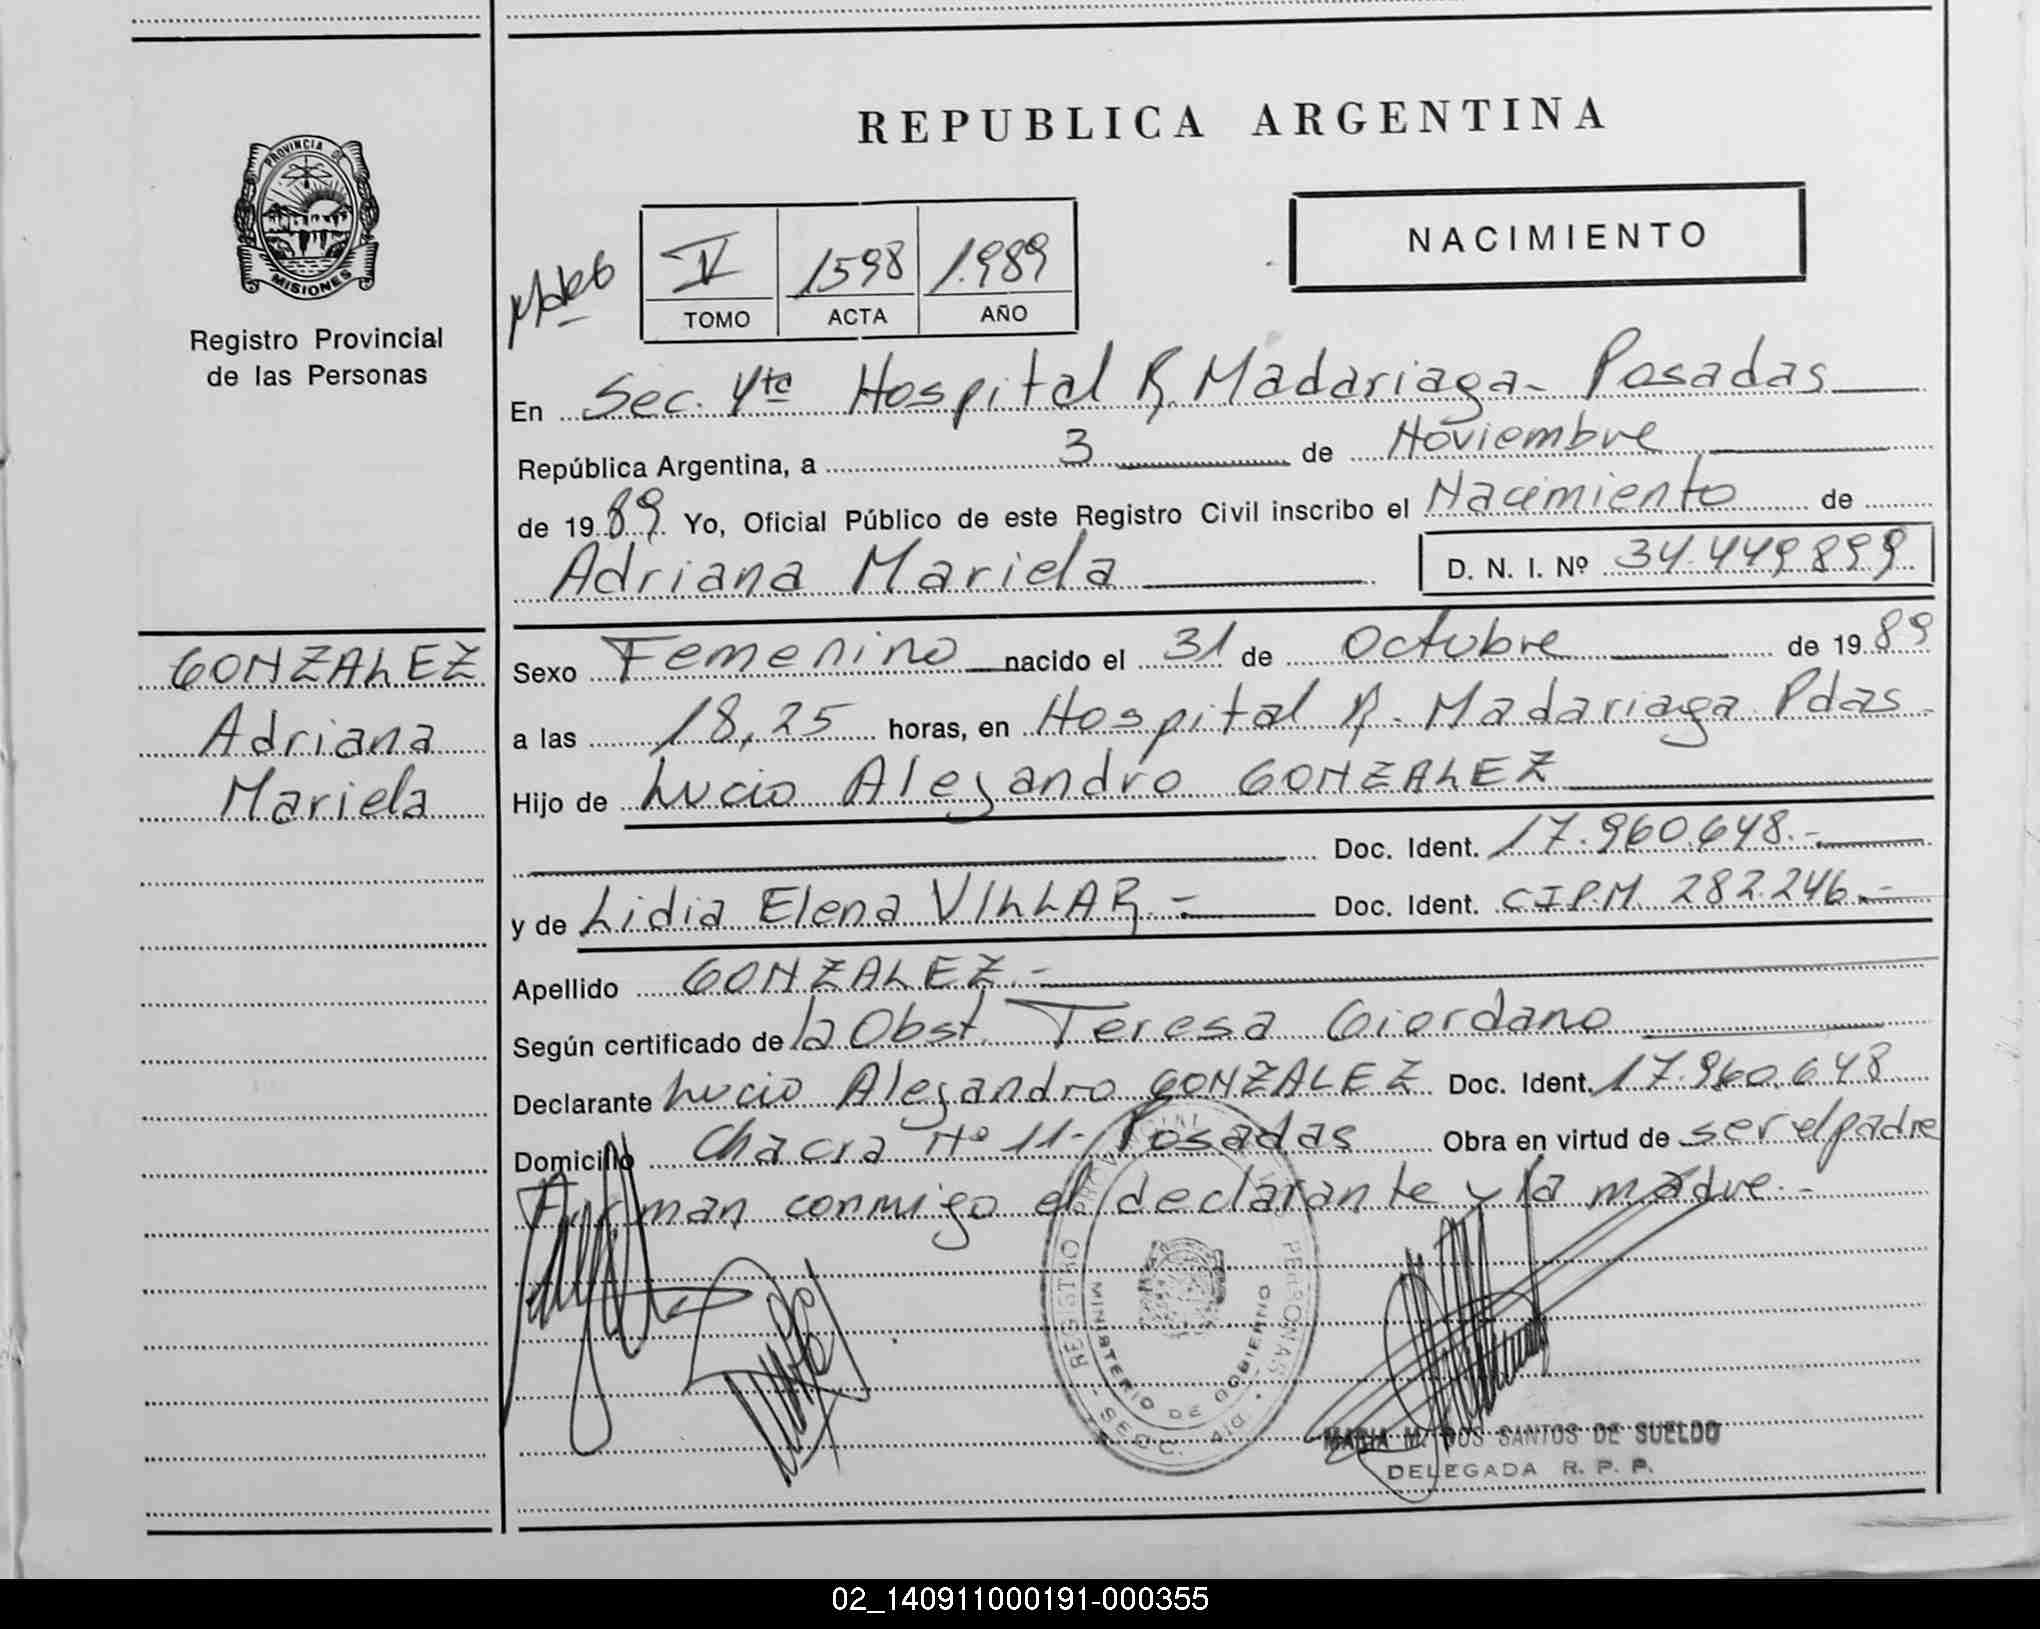 REPUBLICA ARGENTINA
PROVINCIA DE
MISIONES
Registro Provincial
de las Personas
V 1598 1.989
TOMO ACTA AÑO
NACIMIENTO
En Sec. 4ta Hospital R. Madariaga - Posadas
República Argentina, a 3 de Noviembre
de 1989. Yo, Oficial Público de este Registro Civil inscribo el Nacimiento de
Adriana Mariela D. N. I. Nº 34.449.899
GONZALEZ
Adriana
Mariela
Sexo Femenino nacido el 31 de Octubre de 1989
a las 18,25 horas, en Hospital R. Madariaga Pdas -
Hijo de Lucio Alejandro GONZALEZ
Doc. Ident. 17.960.648.-
y de Lidia Elena VILLAR.- Doc. Ident. C.I.P.M. 282.246.-
Apellido GONZALEZ.-
Según certificado de la Obst. Teresa Giordano
Declarante Lucio Alejandro GONZALEZ Doc. Ident. 17.960.648
Domicilio Chacra Nº 11- Posadas Obra en virtud de ser el padre
Firman conmigo el declarante y la madre.-
REGISTRO PROVINCIAL PERSONAS
MINISTERIO DE GOBIERNO
SECC. 4ta
MARIA M. DOS SANTOS DE SUELDO
DELEGADA R. P. P.
02_140911000191-000355